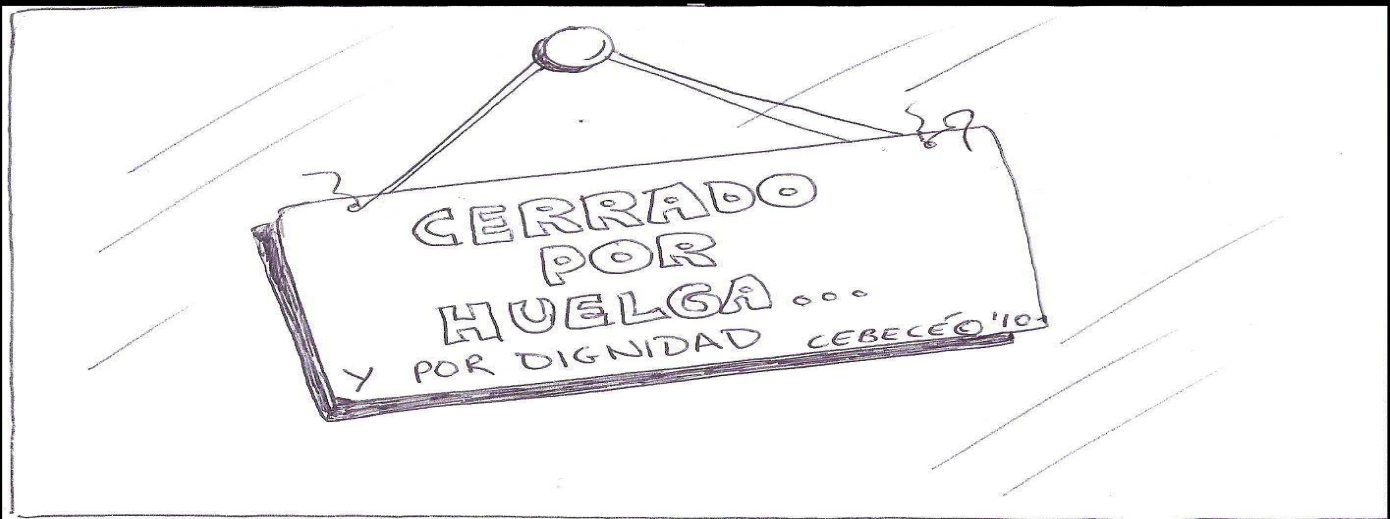 CERRADO
POR
HUELGA...
Y POR DIGNIDAD CEBECÉ© '10